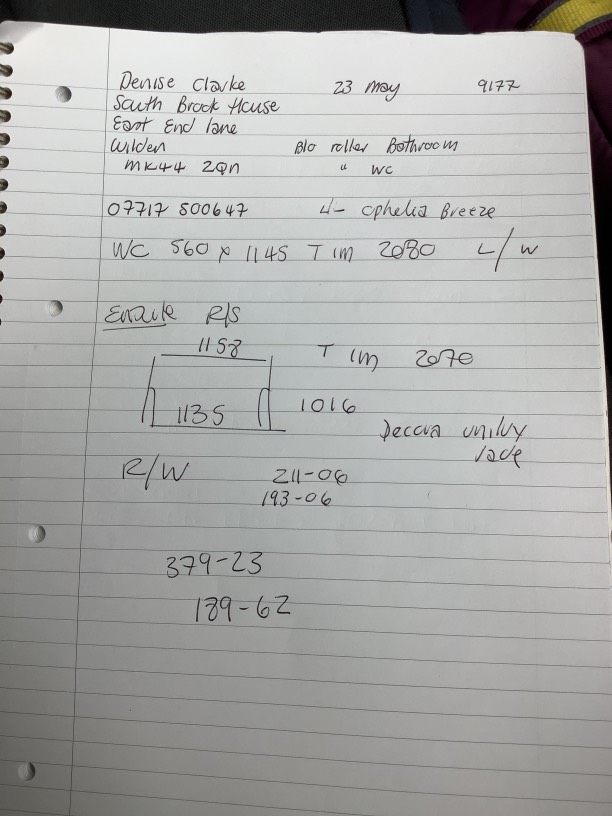 Denise Clarke 23 may 9177
South Brook House
East End lane
Wilden Blo roller Bathroom
mk44 2Qn " WC
07717 500647 Ophelia Breeze
WC 560 x 1145 T im 2080 L/W
R/S
1158 T im 2070
1135 1016
Decora
R/W 211-06
193-06
379-23
189-62